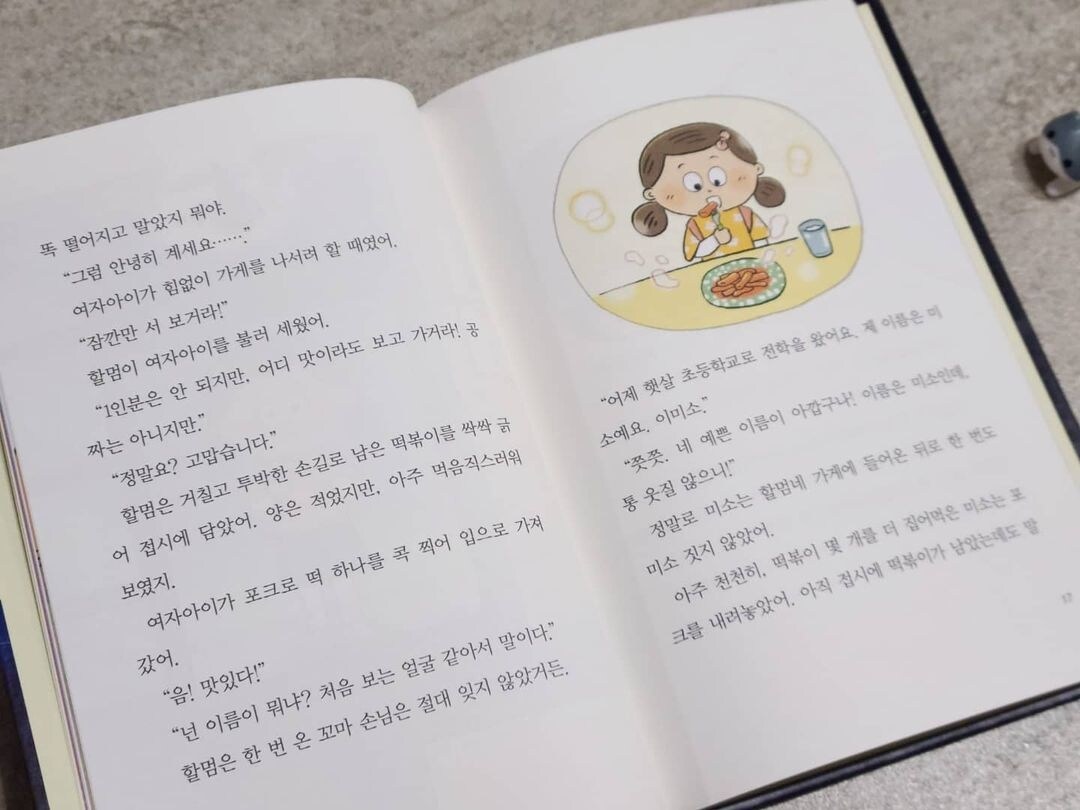 똑 떨어지고 말았지 뭐야.
“그럼 안녕히 계세요…….”
여자아이가 힘없이 가게를 나서려 할 때였어.
“잠깐만 서 보거라!”
할멈이 여자아이를 불러 세웠어.
“1인분은 안 되지만, 어디 맛이라도 보고 가거라! 공
짜는 아니지만.”
“정말요? 고맙습니다.”
할멈은 거칠고 투박한 손길로 남은 떡볶이를 싹싹 긁
어 접시에 담았어. 양은 적었지만, 아주 먹음직스러워
보였지.
여자아이가 포크로 떡 하나를 콕 찍어 입으로 가져
갔어.
“음! 맛있다!”
“넌 이름이 뭐냐? 처음 보는 얼굴 같아서 말이다.”
할멈은 한 번 온 꼬마 손님은 절대 잊지 않았거든.
“어제 햇살 초등학교로 전학을 왔어요. 제 이름은 미
소예요. 이미소.”
“쯧쯧. 네 예쁜 이름이 아깝구나! 이름은 미소인데,
통 웃질 않으니!”
정말로 미소는 할멈네 가게에 들어온 뒤로 한 번도
미소 짓지 않았어.
아주 천천히, 떡볶이 몇 개를 더 집어먹은 미소는 포
크를 내려놓았어. 아직 접시에 떡볶이가 남았는데도 말
17